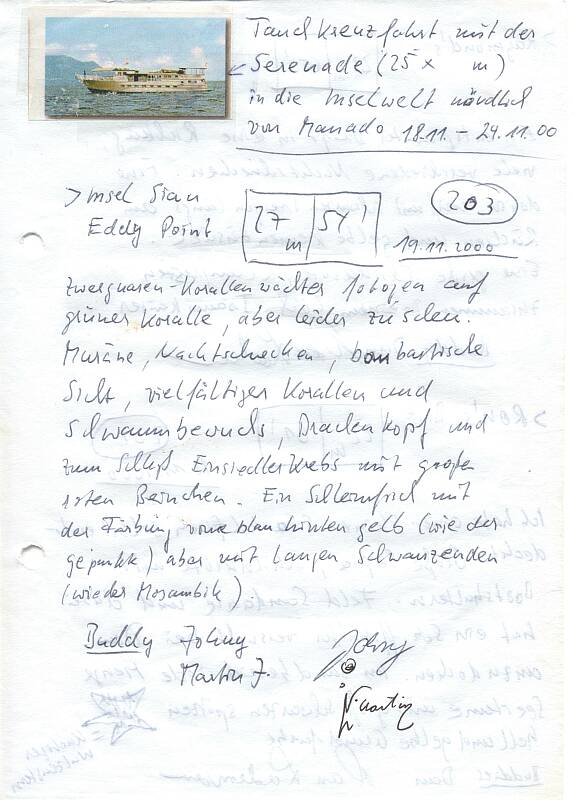 Tauchkreuzfahrt mit der
Serenade (25 x m)
in die Inselwelt nördlich
von Manado 18.11. – 24.11.00
> Insel Siau
Eddy Point
27 m 54
203
19.11.2000
Zwergnasen-Korallenwächter fotogen auf
grüner Koralle, aber leider zu scheu.
Muräne, Nachtschnecken, bombastische
Sicht, vielfältiger Korallen und
Schwammbewuchs, Drachenkopf und
zum Schluß Einsiedlerkrebs mit großen
roten Beinchen. Ein mit
der Färbung vorne blau hinten gelb (wie der
gepunkte) aber mit langen Schwanzenden
(wie der Mosambik).
Buddy Johny
Martin J.
Johny
Martin